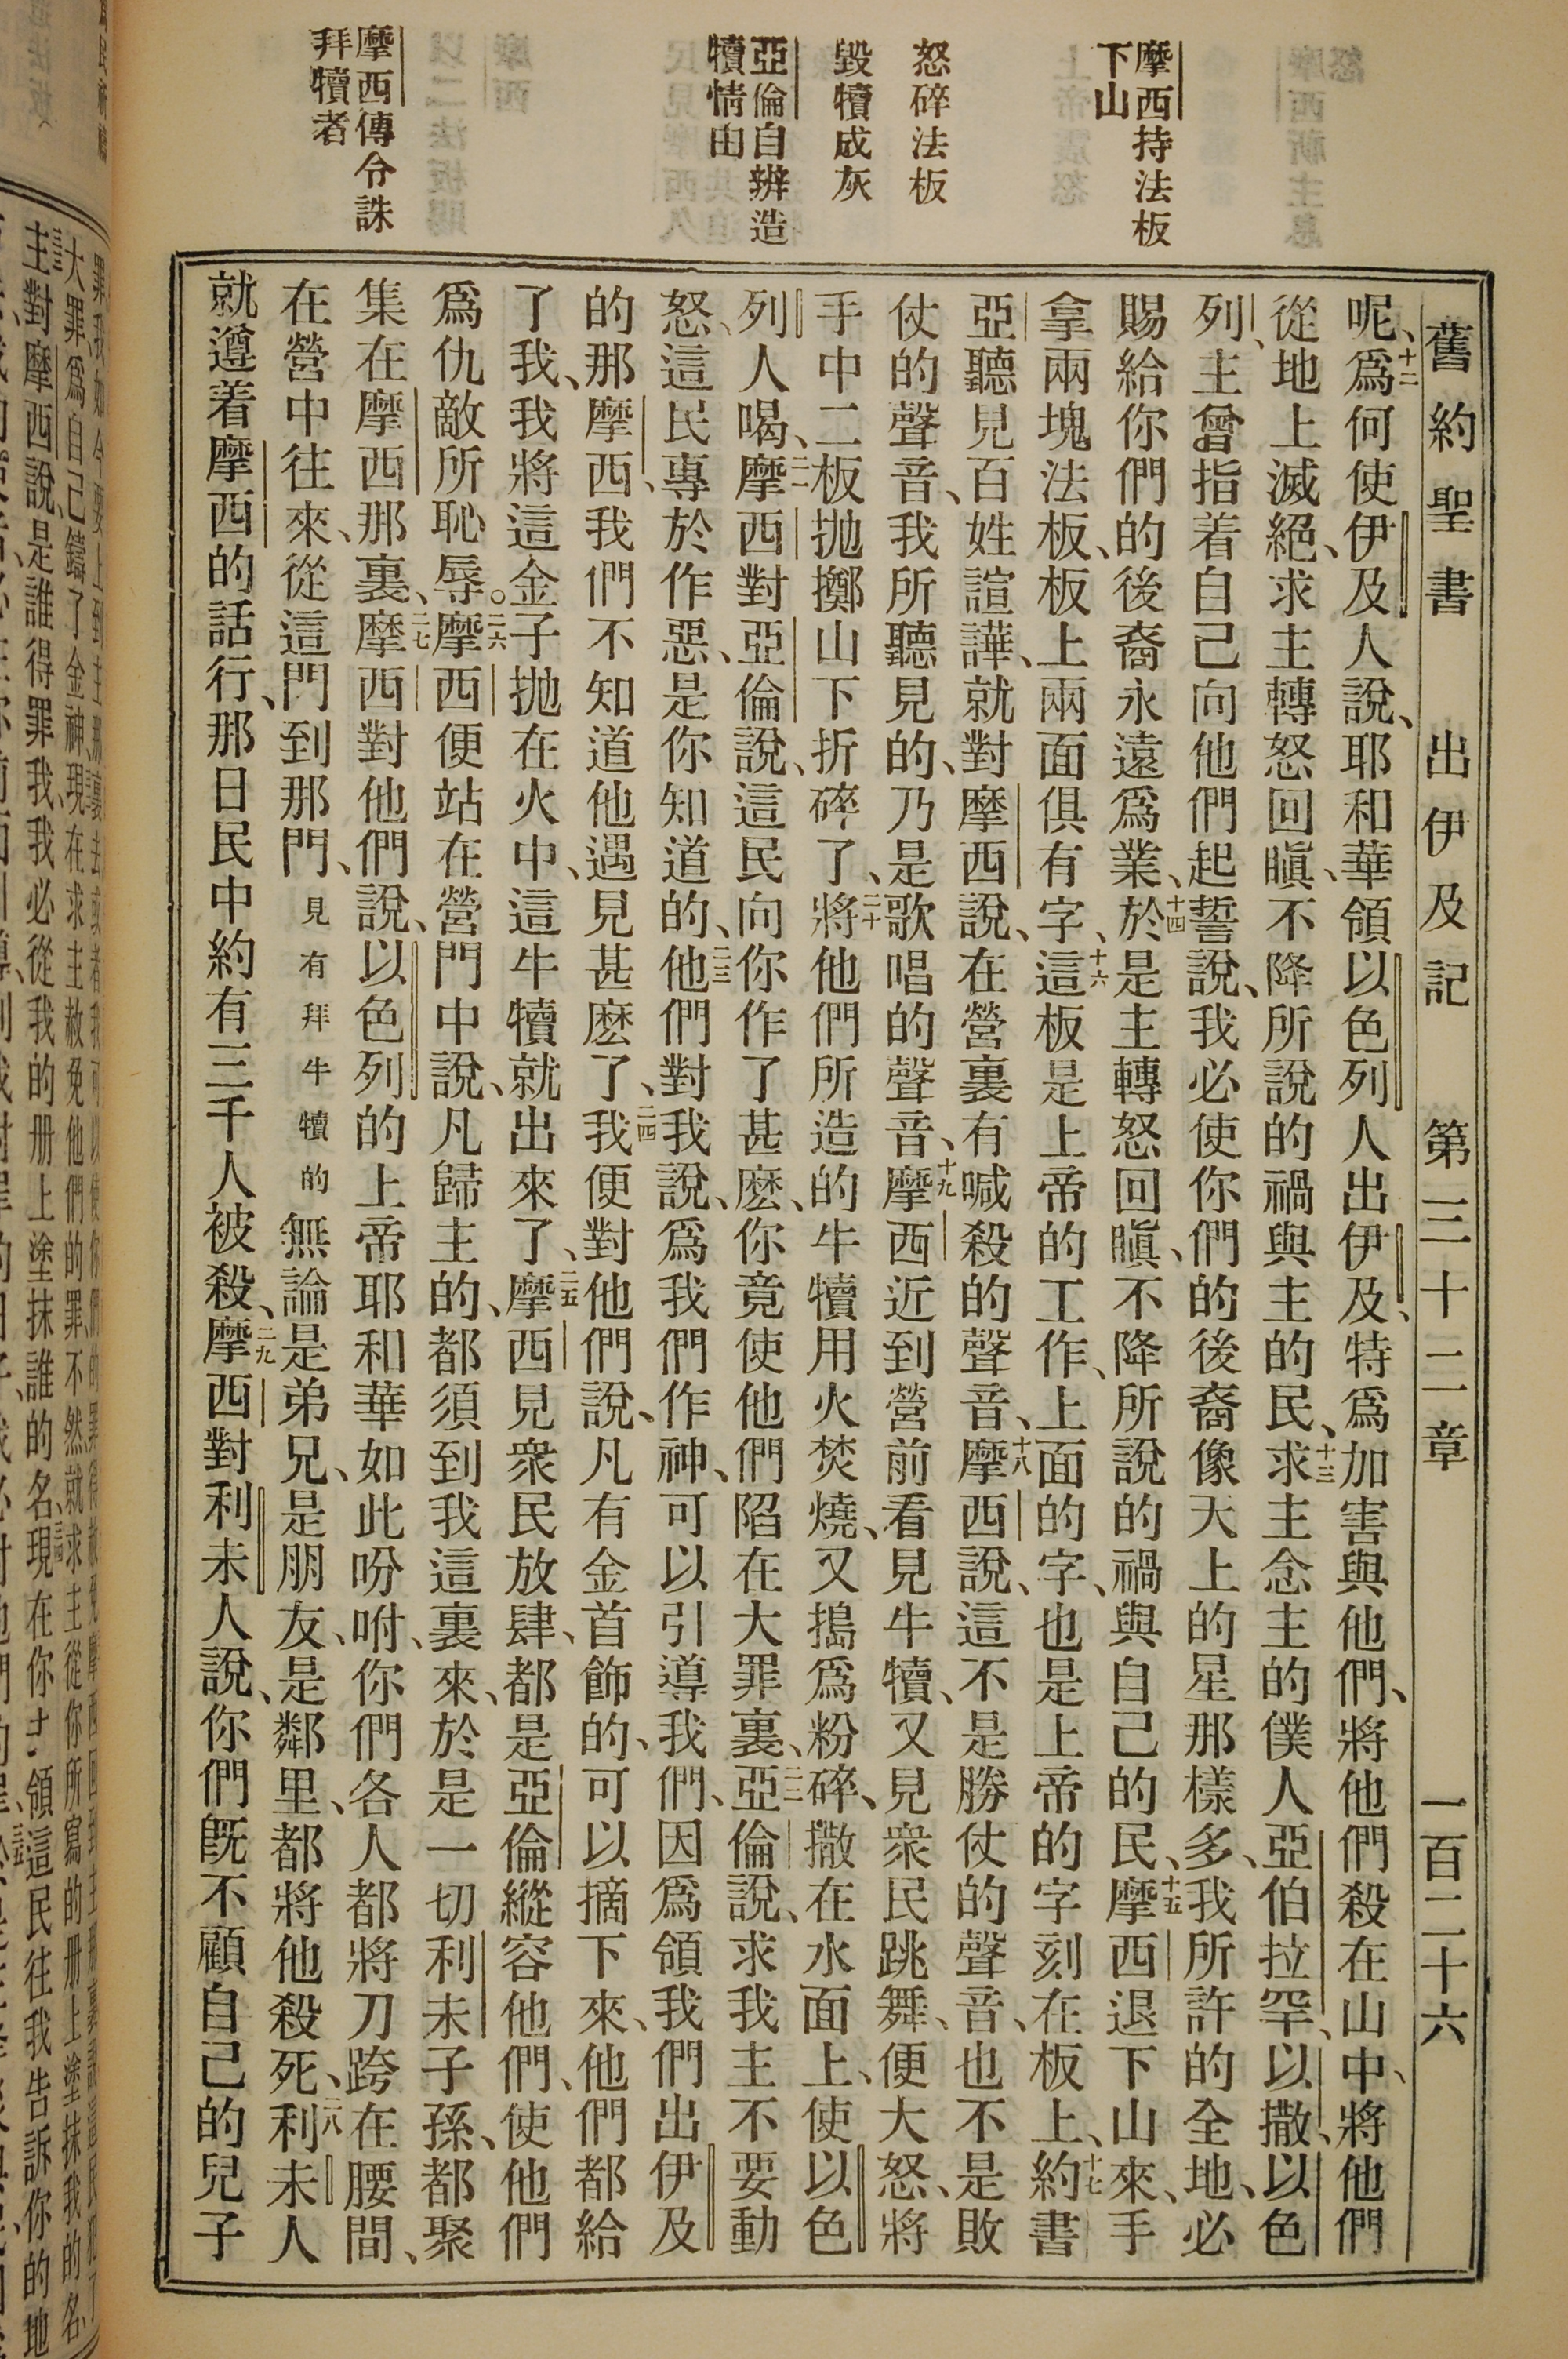 舊約聖書 出伊及記 第三十二章 一百二十六
摩西持法板
下山
怒碎法板
毀犢成灰
亞倫自辨造
犢情由
摩西傳令誅
拜犢者
呢、十二爲何使伊及人說、耶和華領以色列人出伊及、特爲加害與他們、將他們殺在山中、將他們
從地上滅絕、求主轉怒回瞋、不降所說的禍與主的民、十三求主念主的僕人亞伯拉罕、以撒、以色
列、主曾指着自己向他們起誓說、我必使你們的後裔像天上的星那樣多、我所許的全地、必
賜給你們的後裔永遠爲業、十四於是主轉怒回瞋、不降所說的禍與自己的民、十五摩西退下山來、手
拿兩塊法板、板上兩面俱有字、十六這板是上帝的工作、上面的字、也是上帝的字刻在板上、十七約書
亞聽見百姓諠譁、就對摩西說、在營裏有喊殺的聲音、十八摩西說、這不是勝仗的聲音、也不是敗
仗的聲音、我所聽見的、乃是歌唱的聲音、十九摩西近到營前看見牛犢、又見衆民跳舞、便大怒、將
手中二板拋擲山下折碎了、二十將他們所造的牛犢用火焚燒、又搗爲粉碎、撒在水面上、使以色
列人喝、二一摩西對亞倫說、這民向你作了甚麽、你竟使他們陷在大罪裏、二二亞倫說、求我主不要動
怒、這民專於作惡、是你知道的、二三他們對我說、爲我們作神、可以引導我們、因爲領我們出伊及
的那摩西、我們不知道他遇見甚麽了、二四我便對他們說、凡有金首飾的、可以摘下來、他們都給
了我、我將這金子拋在火中、這牛犢就出來了、二五摩西見衆民放肆、都是亞倫縱容他們、使他們
爲仇敵所恥辱。二六摩西便站在營門中說、凡歸主的、都須到我這裏來、於是一切利未子孫、都聚
集在摩西那裏、二七摩西對他們說、以色列的上帝耶和華如此吩咐、你們各人都將刀跨在腰間、
在營中往來、從這門到那門、見有拜牛犢的無論是弟兄、是朋友、是鄰里、都將他殺死、二八利未人
就遵着摩西的話行、那日民中約有三千人被殺、二九摩西對利未人說、你們旣不顧自己的兒子